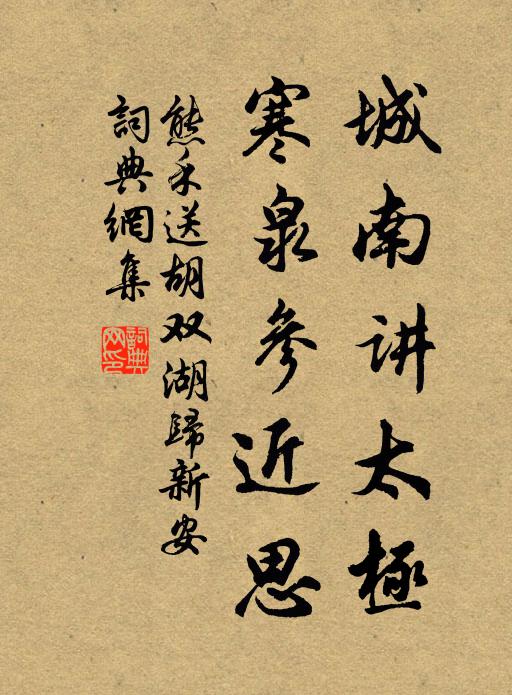 城南讲太極
寒泉參近思
熊禾送胡双湖歸新安
詞典網集
詞典網印